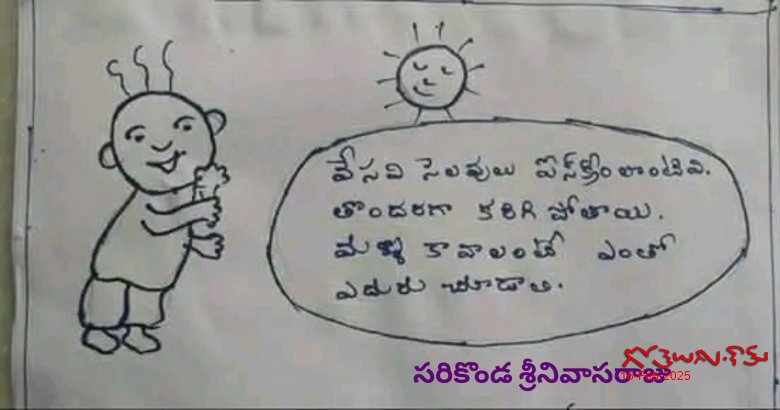 వేసవి సెలవులు ఐస్‌క్రీం లాంటివి.
తొందరగా కరిగి పోతాయి.
మళ్ళీ కావాలంటే ఎంతో
ఎదురు చూడాలి.
సరికొండ శ్రీనివాసరాజు
గోతెలుగు.కామ్